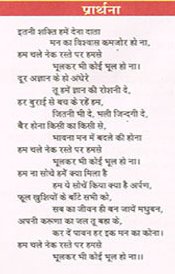 प्रार्थना
इतनी शक्ति हमें देना दाता
मन का विश्वास कमजोर हो ना,
हम चले नेक रस्ते पर हमसे
भूलकर भी कोई भूल हो ना।
दूर अज्ञान के हो अंधेरे
तू हमें ज्ञान की रोशनी दे,
हर बुराई से बच के रहें हम,
जितनी भी दे, भली जिन्दगी दे,
बैर होना किसी का किसी से,
भावना मन में बदले की होना
हम चले नेक रस्ते पर हमसे
भूलकर भी कोई भूल हो ना।
हम ना सोचे हमें क्या मिला है
हम ये सोचें किया क्या है अर्पण,
फूल खुशियों के बाँटे सभी को,
सब का जीवन ही बन जायें मधुबन,
अपनी करूणा का जल तू बहा के,
कर दें पावन हर इक मन का कोना।
हम चले नेक रस्ते पर हमसे
भूलकर भी कोई भूल हो ना।।